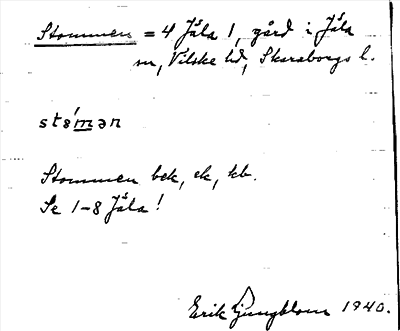 Stommen = 4 Jäla 1, gård i Jäla
sn, Vilske hd, Skaraborgs l.
stómən
Stommen bek, ek, kb.
Se 1-8 Jäla!
Erik Ljungblom 1940.